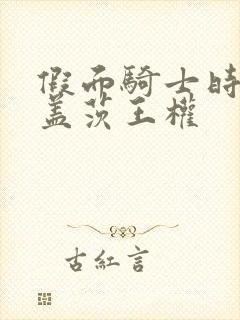 假面騎士時
盖茨王權
古紅言